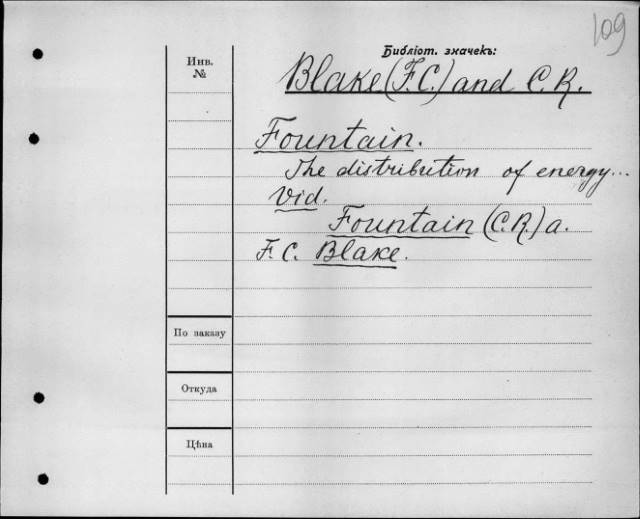 109
Библіот. значекъ:
Инв.
№
Blake (F.C.) and C.R.
Fountain.
The distribution of energy...
Vid.
Fountain (C.R.) a.
F. C. Blake.
По заказу
Откуда
Цѣна